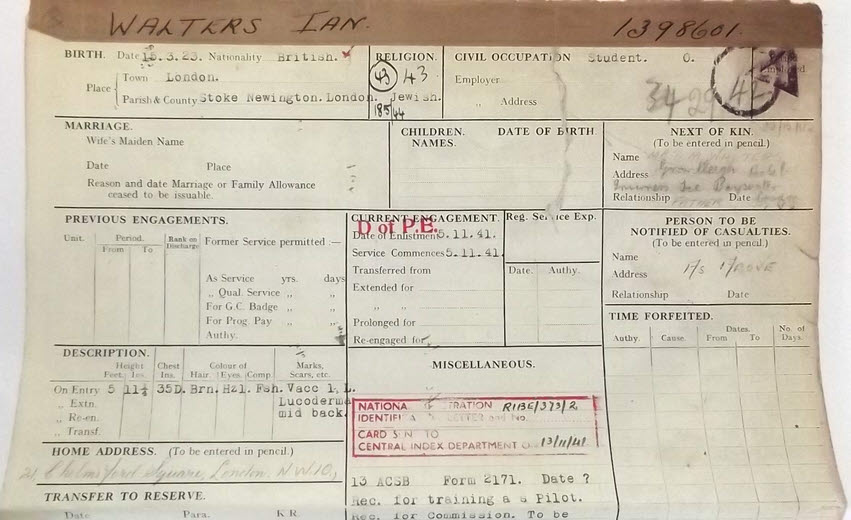 WALTERS IAN. 1398601.
BIRTH. Date 15.3.23. Nationality British.
Place Town London.
Parish & County Stoke Newington. London.
RELIGION.
43 43
Jewish.
185/44
CIVIL OCCUPATION Student. O.
Employer
„ Address
34 29 42
MARRIAGE.
Wife's Maiden Name
Date Place
Reason and date Marriage or Family Allowance
ceased to be issuable.
CHILDREN. DATE OF BIRTH.
NAMES.
NEXT OF KIN.
(To be entered in pencil.)
Name
Address
Relationship FATHER Date
PREVIOUS ENGAGEMENTS.
Unit. Period. Rank on Discharge Former Service permitted :—
From To
As Service yrs. days
„ Qual. Service „ „
For G.C. Badge „ „
For Prog. Pay „ „
Authy.
CURRENT ENGAGEMENT.
D of P.E.
Date of Enlistment 5.11.41.
Service Commences 5.11.41.
Transferred from
Extended for
„ „
Prolonged for
Re-engaged for
Reg. Service Exp.
Date. Authy.
PERSON TO BE
NOTIFIED OF CASUALTIES.
(To be entered in pencil.)
Name
Address
Relationship Date
TIME FORFEITED.
Authy. Cause. Dates. No. of Days.
From To
DESCRIPTION.
Height Chest Colour of Marks,
Feet. Ins. Ins. Hair. Eyes. Comp. Scars, etc.
On Entry 5 11½ 35D. Brn. Hzl. Fsh. Vacc 1, L.
„ Extn. Lucoderma
„ Re-en. mid back.
„ Transf.
MISCELLANEOUS.
NATIONAL REGISTRATION RIBE/373/2
IDENTIFICATION LETTER and No.
CARD SENT TO
CENTRAL INDEX DEPARTMENT ON 13/11/41
HOME ADDRESS. (To be entered in pencil.)
21 Chelmsford Square, London. N.W.10,
13 ACSB Form 2171. Date ?
Rec. for training a s Pilot.
Rec. for Commission. To be
TRANSFER TO RESERVE.
Date Para. K.R.